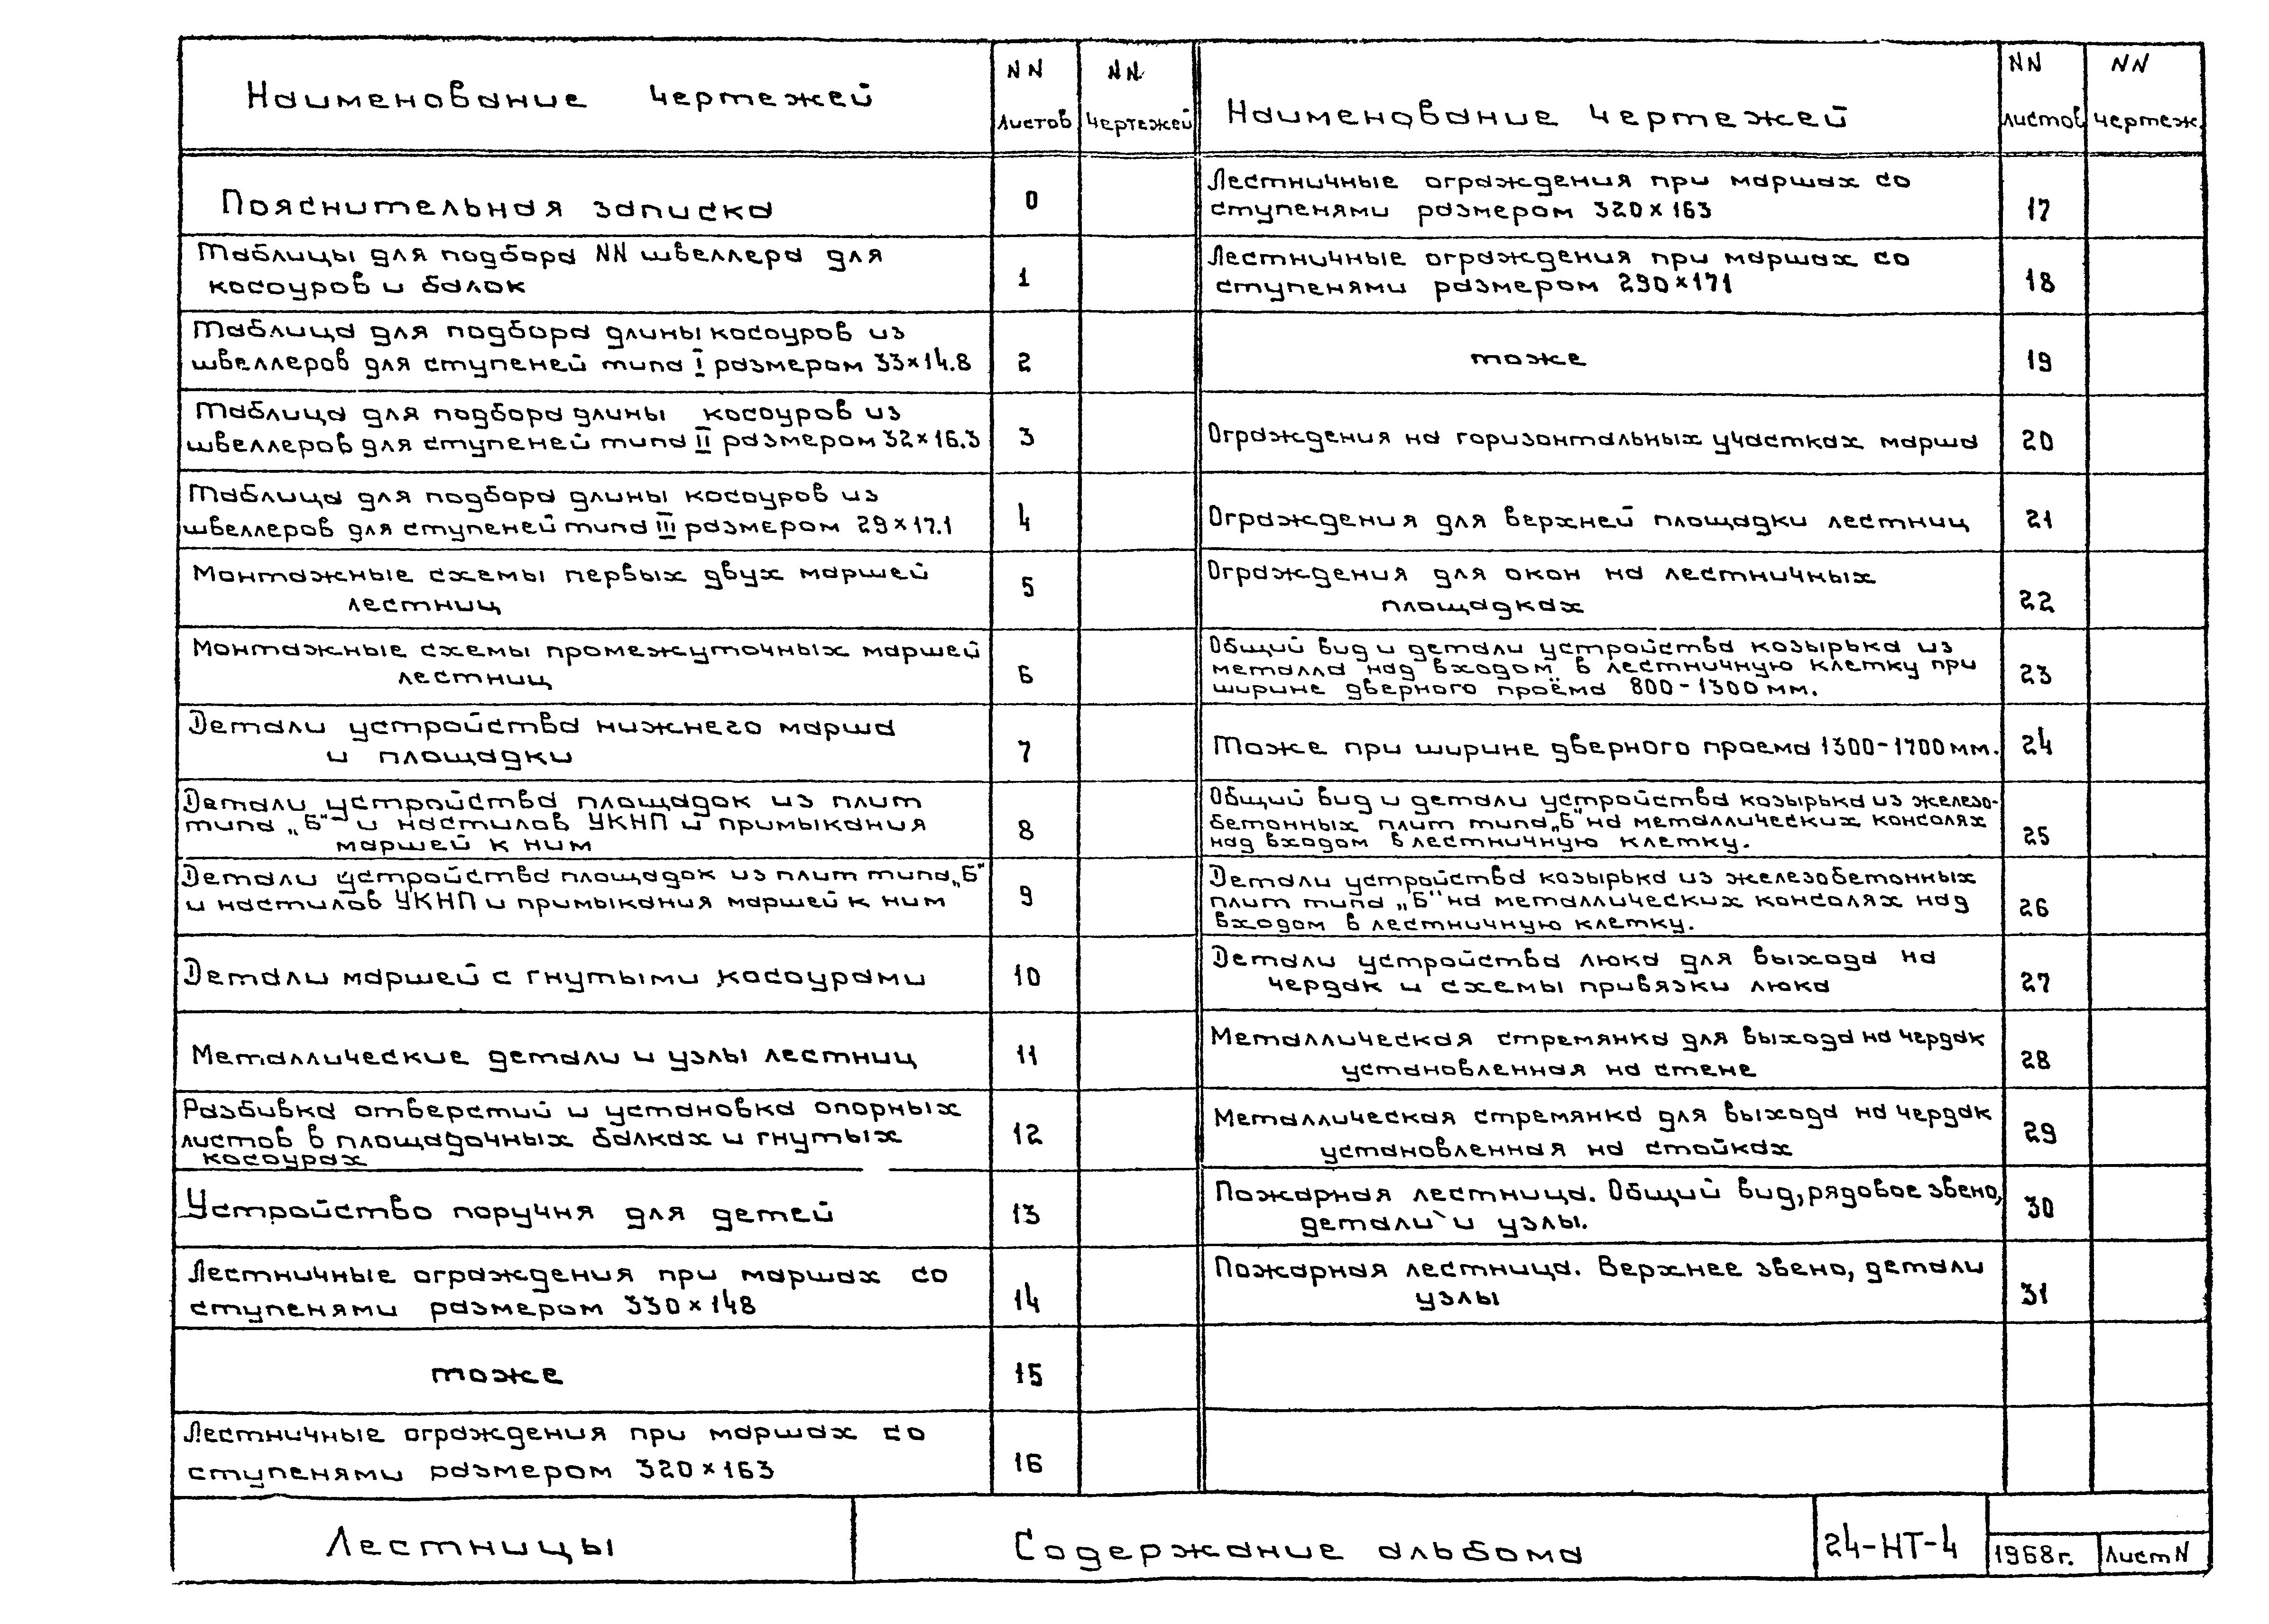 Наименование чертежей
NN листов
NN чертежей
Пояснительная записка
0
Таблицы для подбора NN швеллера для
косоуров и балок
1
Таблица для подбора длины косоуров из
швеллеров для ступеней типа I размером 33×14.8
2
Таблица для подбора длины косоуров из
швеллеров для ступеней типа II размером 32×16.3
3
Таблица для подбора длины косоуров из
швеллеров для ступеней типа III размером 29×17.1
4
Монтажные схемы первых двух маршей
лестниц
5
Монтажные схемы промежуточных маршей
лестниц
6
Детали устройства нижнего марша
и площадки
7
Детали устройства площадок из плит
типа „Б" и настилов УКНП и примыкания
маршей к ним
8
Детали устройства площадок из плит типа „Б"
и настилов УКНП и примыкания маршей к ним
9
Детали маршей с гнутыми косоурами
10
Металлические детали и узлы лестниц
11
Разбивка отверстий и установка опорных
листов в площадочных балках и гнутых
косоурах
12
Устройство поручня для детей
13
Лестничные ограждения при маршах со
ступенями размером 330×148
14
тоже
15
Лестничные ограждения при маршах со
ступенями размером 320×163
16
Наименование чертежей
NN листов
NN чертеж.
Лестничные ограждения при маршах со
ступенями размером 320×163
17
Лестничные ограждения при маршах со
ступенями размером 290×171
18
тоже
19
Ограждения на горизонтальных участках марша
20
Ограждения для верхней площадки лестниц
21
Ограждения для окон на лестничных
площадках
22
Общий вид и детали устройства козырька из
металла над входом в лестничную клетку при
ширине дверного проёма 800-1300 мм.
23
Тоже при ширине дверного проема 1300-1700 мм.
24
Общий вид и детали устройства козырька из железо-
бетонных плит типа „Б" на металлических консолях
над входом в лестничную клетку.
25
Детали устройства козырька из железобетонных
плит типа „Б" на металлических консолях над
входом в лестничную клетку.
26
Детали устройства люка для выхода на
чердак и схемы привязки люка
27
Металлическая стремянка для выхода на чердак
установленная на стене
28
Металлическая стремянка для выхода на чердак
установленная на стойках
29
Пожарная лестница. Общий вид, рядовое звено,
детали и узлы.
30
Пожарная лестница. Верхнее звено, детали
узлы
31
Лестницы
Содержание альбома
24-НТ-4
1968г.
Лист N